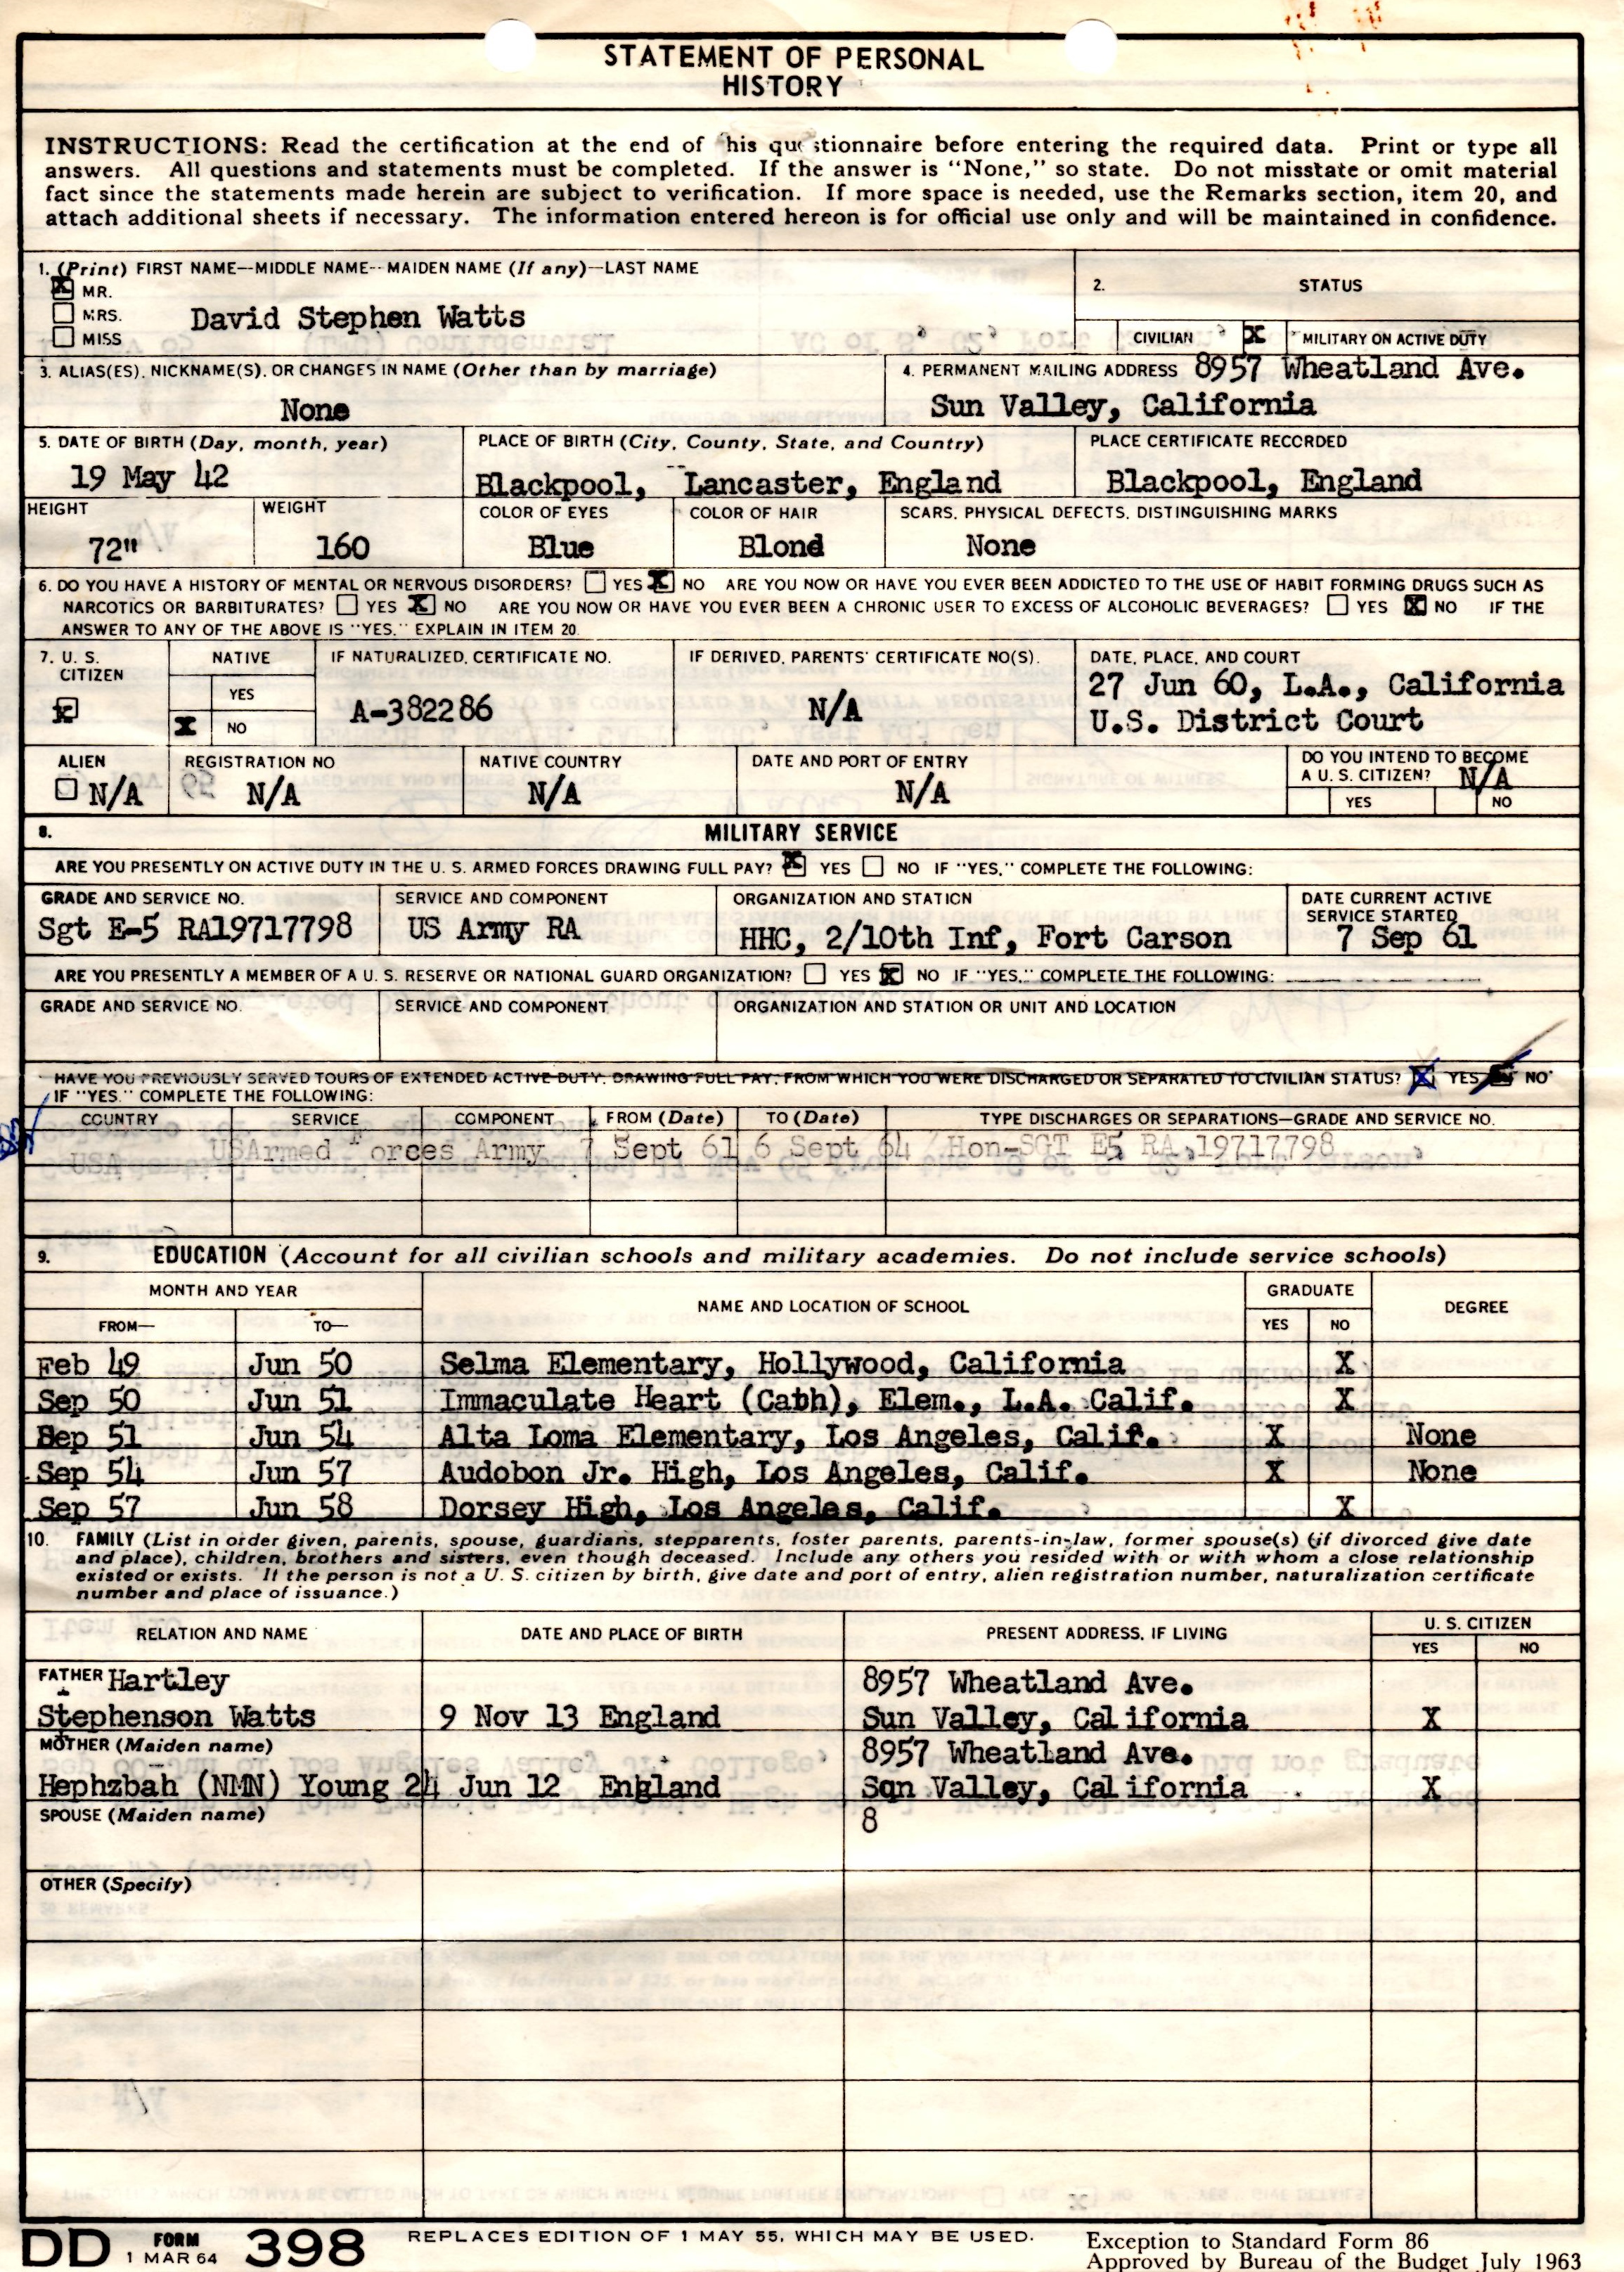 STATEMENT OF PERSONAL
HISTORY
INSTRUCTIONS: Read the certification at the end of his qu stionnaire before entering the required data. Print or type all
answers. All questions and statements must be completed. If the answer is "None," so state. Do not misstate or omit material
fact since the statements made herein are subject to verification. If more space is needed, use the Remarks section, item 20, and
attach additional sheets if necessary. The information entered hereon is for official use only and will be maintained in confidence.
1. (Print) FIRST NAME--MIDDLE NAME--MAIDEN NAME (If any)--LAST NAME
X MR.
MRS.
MISS
David Stephen Watts
2. STATUS
CIVILIAN X MILITARY ON ACTIVE DUTY
3. ALIAS(ES), NICKNAME(S), OR CHANGES IN NAME (Other than by marriage)
None
4. PERMANENT MAILING ADDRESS 8957 Wheatland Ave.
Sun Valley, California
5. DATE OF BIRTH (Day, month, year)
19 May 42
PLACE OF BIRTH (City, County, State, and Country)
Blackpool, Lancaster, England
PLACE CERTIFICATE RECORDED
Blackpool, England
HEIGHT
72"
WEIGHT
160
COLOR OF EYES
Blue
COLOR OF HAIR
Blond
SCARS, PHYSICAL DEFECTS, DISTINGUISHING MARKS
None
6. DO YOU HAVE A HISTORY OF MENTAL OR NERVOUS DISORDERS? YES X NO ARE YOU NOW OR HAVE YOU EVER BEEN ADDICTED TO THE USE OF HABIT FORMING DRUGS SUCH AS
NARCOTICS OR BARBITURATES? YES X NO ARE YOU NOW OR HAVE YOU EVER BEEN A CHRONIC USER TO EXCESS OF ALCOHOLIC BEVERAGES? YES X NO IF THE
ANSWER TO ANY OF THE ABOVE IS "YES," EXPLAIN IN ITEM 20.
7. U. S. CITIZEN
X
NATIVE
YES
X NO
IF NATURALIZED, CERTIFICATE NO.
A-382286
IF DERIVED, PARENTS' CERTIFICATE NO(S).
N/A
DATE, PLACE, AND COURT
27 Jun 60, L.A., California
U.S. District Court
ALIEN
N/A
REGISTRATION NO
N/A
NATIVE COUNTRY
N/A
DATE AND PORT OF ENTRY
N/A
DO YOU INTEND TO BECOME
A U. S. CITIZEN? N/A
YES NO
8. MILITARY SERVICE
ARE YOU PRESENTLY ON ACTIVE DUTY IN THE U. S. ARMED FORCES DRAWING FULL PAY? X YES NO IF "YES," COMPLETE THE FOLLOWING:
GRADE AND SERVICE NO.
Sgt E-5 RA19717798
SERVICE AND COMPONENT
US Army RA
ORGANIZATION AND STATION
HHC, 2/10th Inf, Fort Carson
DATE CURRENT ACTIVE
SERVICE STARTED
7 Sep 61
ARE YOU PRESENTLY A MEMBER OF A U. S. RESERVE OR NATIONAL GUARD ORGANIZATION? YES X NO IF "YES," COMPLETE THE FOLLOWING:
GRADE AND SERVICE NO. SERVICE AND COMPONENT ORGANIZATION AND STATION OR UNIT AND LOCATION
HAVE YOU PREVIOUSLY SERVED TOURS OF EXTENDED ACTIVE DUTY, DRAWING FULL PAY, FROM WHICH YOU WERE DISCHARGED OR SEPARATED TO CIVILIAN STATUS? X YES NO
IF "YES," COMPLETE THE FOLLOWING:
COUNTRY SERVICE COMPONENT FROM (Date) TO (Date) TYPE DISCHARGES OR SEPARATIONS—GRADE AND SERVICE NO.
USA USArmed Forces Army 7 Sept 61 6 Sept 64 Hon-SGT E5 RA 19717798
9. EDUCATION (Account for all civilian schools and military academies. Do not include service schools)
MONTH AND YEAR
FROM— TO—
NAME AND LOCATION OF SCHOOL
GRADUATE
YES NO
DEGREE
Feb 49 Jun 50 Selma Elementary, Hollywood, California X
Sep 50 Jun 51 Immaculate Heart (Cabh), Elem., L.A. Calif. X
Sep 51 Jun 54 Alta Loma Elementary, Los Angeles, Calif. X None
Sep 54 Jun 57 Audobon Jr. High, Los Angeles, Calif. X None
Sep 57 Jun 58 Dorsey High, Los Angeles, Calif. X
10. FAMILY (List in order given, parents, spouse, guardians, stepparents, foster parents, parents-in-law, former spouse(s) (if divorced give date
and place), children, brothers and sisters, even though deceased. Include any others you resided with or with whom a close relationship
existed or exists. If the person is not a U. S. citizen by birth, give date and port of entry, alien registration number, naturalization certificate
number and place of issuance.)
RELATION AND NAME DATE AND PLACE OF BIRTH PRESENT ADDRESS, IF LIVING U. S. CITIZEN
YES NO
FATHER Hartley 8957 Wheatland Ave.
Stephenson Watts 9 Nov 13 England Sun Valley, California X
MOTHER (Maiden name) 8957 Wheatland Ave.
Hephzbah (NMN) Young 24 Jun 12 England Sqn Valley, California X
SPOUSE (Maiden name) 8
OTHER (Specify)
DD FORM 1 MAR 64 398 REPLACES EDITION OF 1 MAY 55, WHICH MAY BE USED.
Exception to Standard Form 86
Approved by Bureau of the Budget July 1963